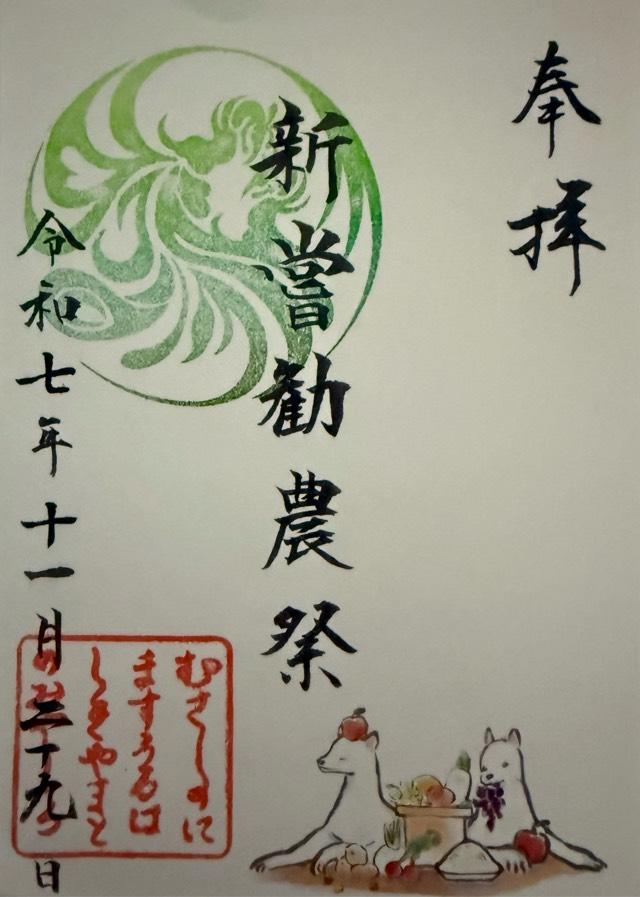 奉拝
新嘗勧農祭
令和七年十一月二十九日
むさしのに
ますうるは
しきやまと